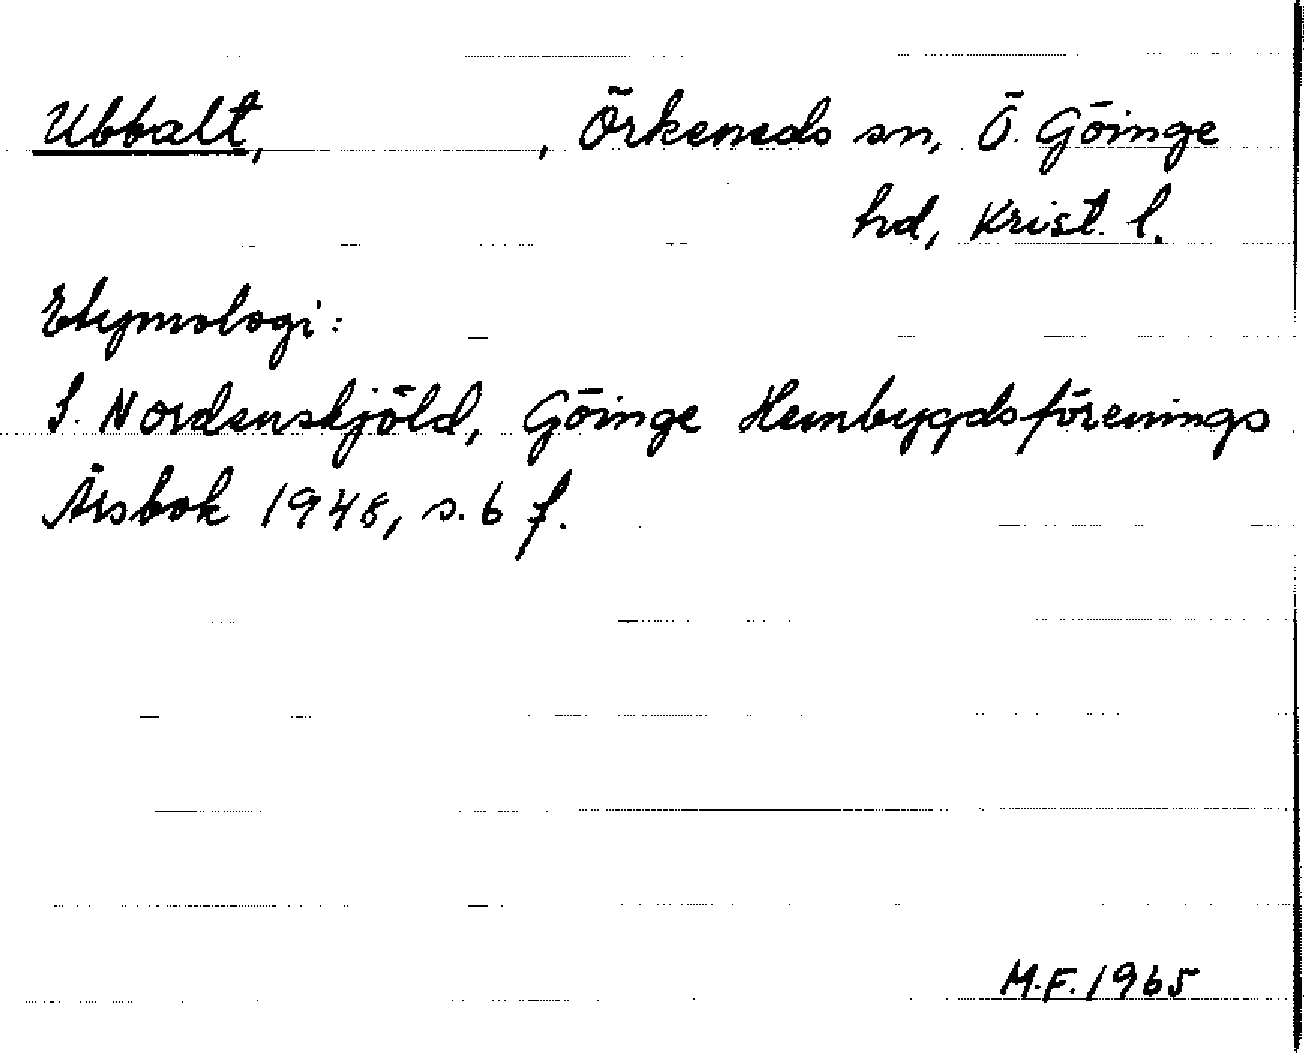 Ubbalt, , Örkeneds sn, Ö. Göinge
hd, Krist. l.
Etymologi:
S. Nordenskjöld, Göinge Hembygdsförenings
Årsbok 1948, s. 6 f.
M.F. 1965